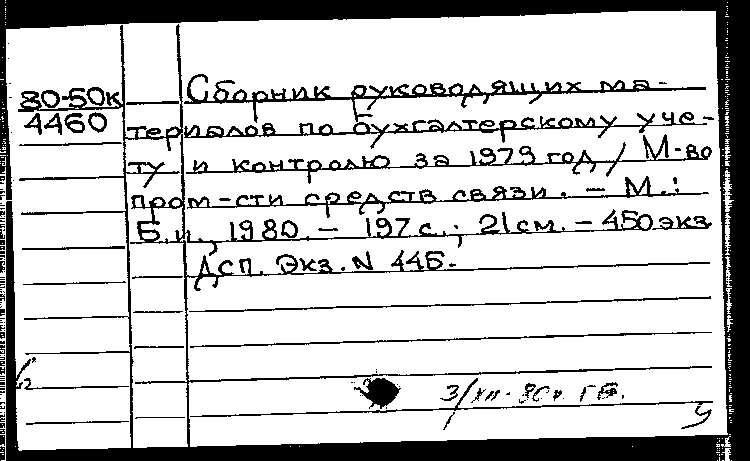 80-50к
4460
Сборник руководящих ма-
териалов по бухгалтерскому уче-
ту и контролю за 1979 год / М-во
пром-сти средств связи. - М.:
Б.и., 1980. - 197 с.; 21 см. - 450 экз.
Дсп. Экз. N 446.
3/XII-80г. ГБ.